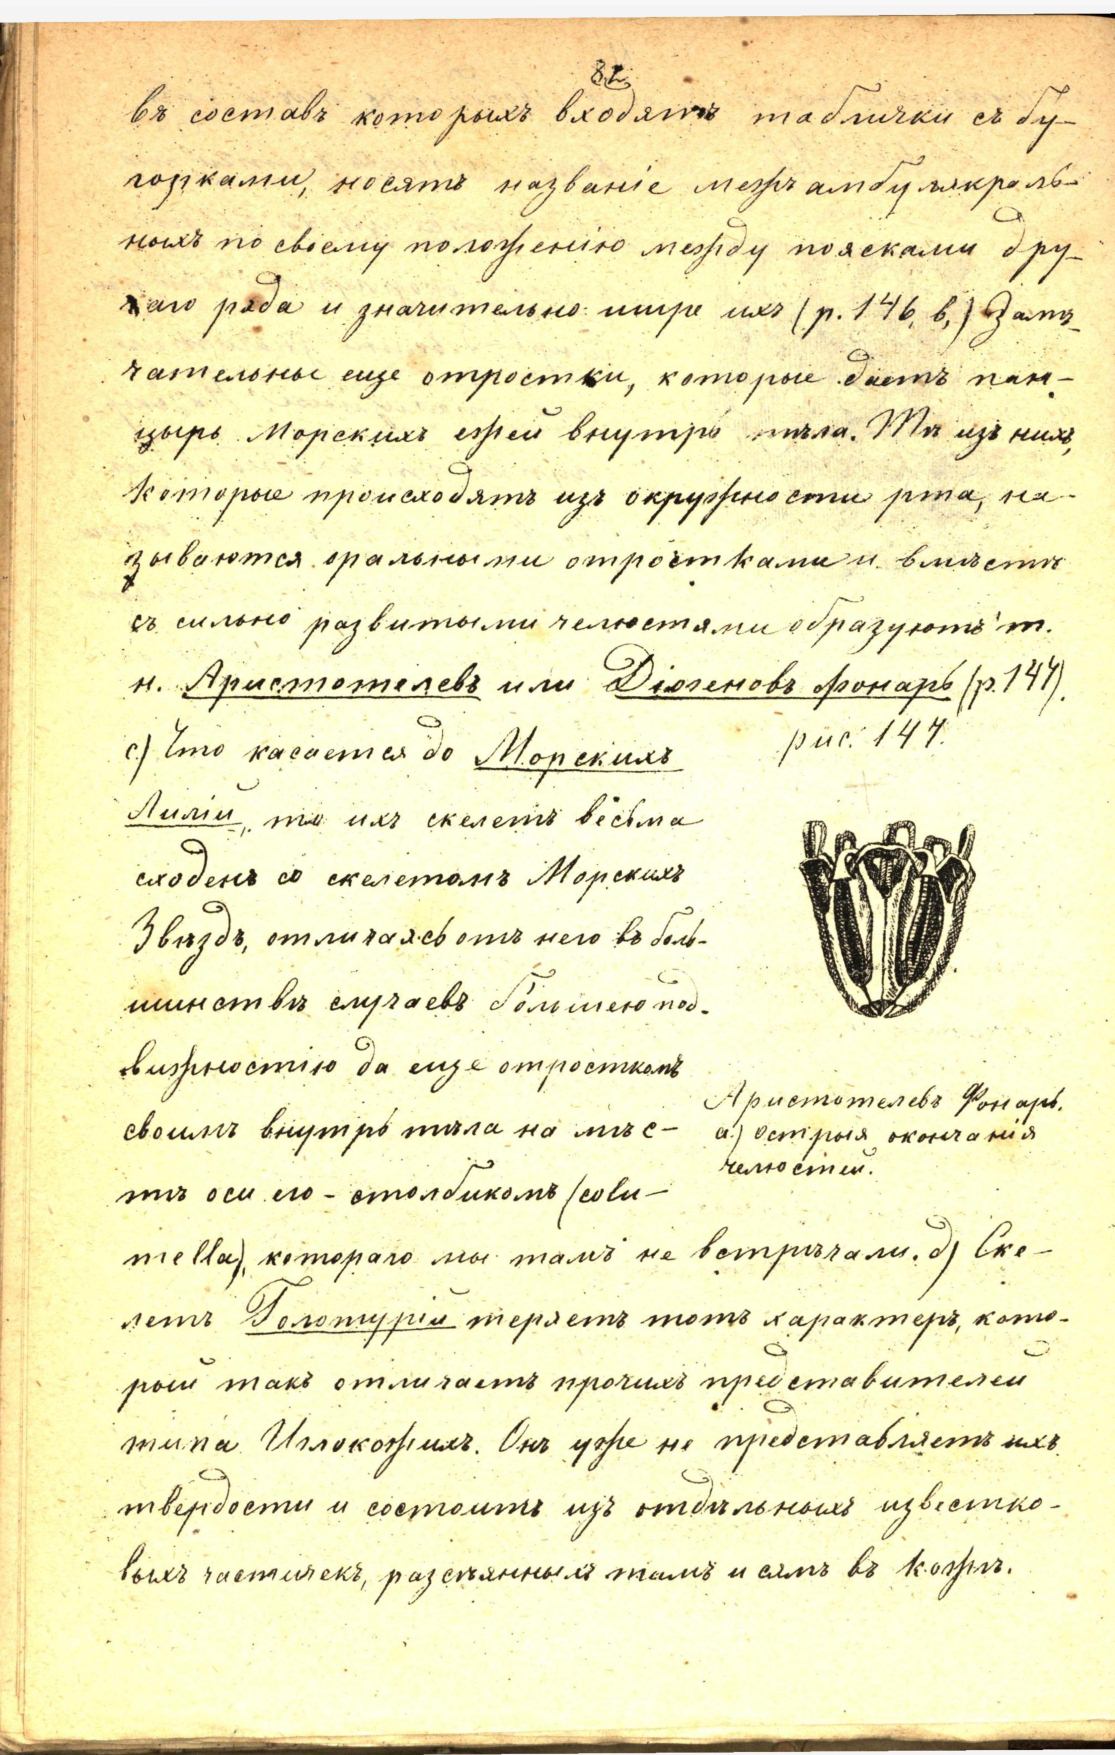 82
въ составъ которыхъ входятъ таблички съ бу-
горками, носятъ названіе межъамбулякраль-
ныхъ по своему положенію между поясками дру-
гаго ряда и значительно шире ихъ (р. 146, в,) Замѣ-
чательны еще отростки, которые даетъ пан-
цырь Морскихъ ежей внутрь тѣла. Тѣ изъ нихъ,
которые происходятъ изъ окружности рта, на-
зываются оральными отростками и вмѣстѣ
съ сильно развитыми челюстями образуютъ т.
н. Аристотелевъ или Діогеновъ фонарь (р. 147).
с) Что касается до Морскихъ
Лилій, то ихъ скелетъ весьма
сходенъ со скелетомъ Морскихъ
Звѣздъ, отличаясь отъ него въ боль-
шинствѣ случаевъ большею под-
вижностію да еще отросткомъ
своимъ внутрь тѣла на мѣс-
тѣ оси его - столбикомъ (colu-
mella), котораго мы тамъ не встрѣчали. д) Ске-
летъ Голотурій теряетъ тотъ характеръ, кото-
рый такъ отличаетъ прочихъ представителей
типа Иглокожихъ. Онъ уже не представляетъ ихъ
твердости и состоитъ изъ отдѣльныхъ известко-
выхъ частичекъ, разсѣянныхъ тамъ и сямъ въ кожѣ.
рис. 147.
Аристотелевъ Фонарь.
а) острыя окончанія
челюстей.